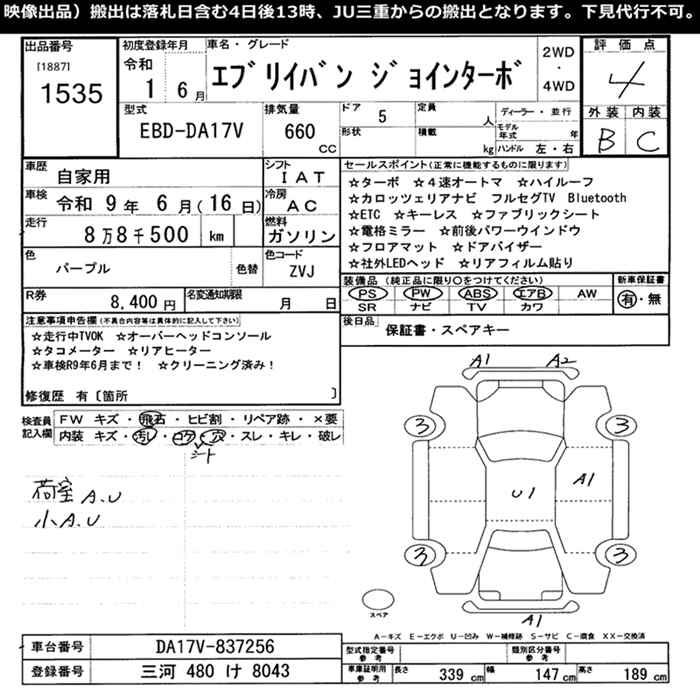 映像出品）搬出は落札日含む4日後13時、JU三重からの搬出となります。下見代行不可。
出品番号
[1887]
1535
初度登録年月
令和
1 6月
車名・グレード
エブリイバン ジョインターボ
2WD
・
4WD
評価点
4
外装 内装
B C
型式
EBD-DA17V
排気量
660
cc
ドア 5
形状
定員 人
積載 kg
ディーラー・並行
モデル年式 年
ハンドル 左・右
車歴
自家用
シフト
IAT
車検
令和 9年 6月(16日)
冷房
AC
走行
8万8千500 km
燃料
ガソリン
色
パープル
色替
色コード
ZVJ
R券
8,400円
名変通知期限
月 日
セールスポイント(正常に機能するものに限ります)
☆ターボ ☆4速オートマ ☆ハイルーフ
☆カロッツェリアナビ フルセグTV Bluetooth
☆ETC ☆キーレス ☆ファブリックシート
☆電格ミラー ☆前後パワーウインドウ
☆フロアマット ☆ドアバイザー
☆社外LEDヘッド ☆リアフィルム貼り
装備品 (純正品に限り○をつけてください)
PS PW ABS エアB AW
SR ナビ TV カワ
新車保証書
有・無
後日品
保証書・スペアキー
注意事項申告欄(不具合内容等は具体的に記入して下さい)
☆走行中TVOK ☆オーバーヘッドコンソール
☆タコメーター ☆リアヒーター
☆車検R9年6月まで! ☆クリーニング済み!
修復歴 有〔箇所 〕
検査員記入欄
FW キズ・飛石・ヒビ割・リペア跡・×要
内装 キズ・汚レ・コゲ・穴・スレ・キレ・破レ
シート
荷室 A.U
小A.U
A1 A2
3 3
U1 A1
3 3
スペア
A1
A－キズ E－エクボ U－凹み W－補修跡 S－サビ C－腐食 XX－交換済
車台番号
DA17V-837256
登録番号
三河 480 け 8043
型式指定番号
参考
類別区分番号
参考
車庫証明用
参考
長さ 339 cm 幅 147 cm 高さ 189 cm